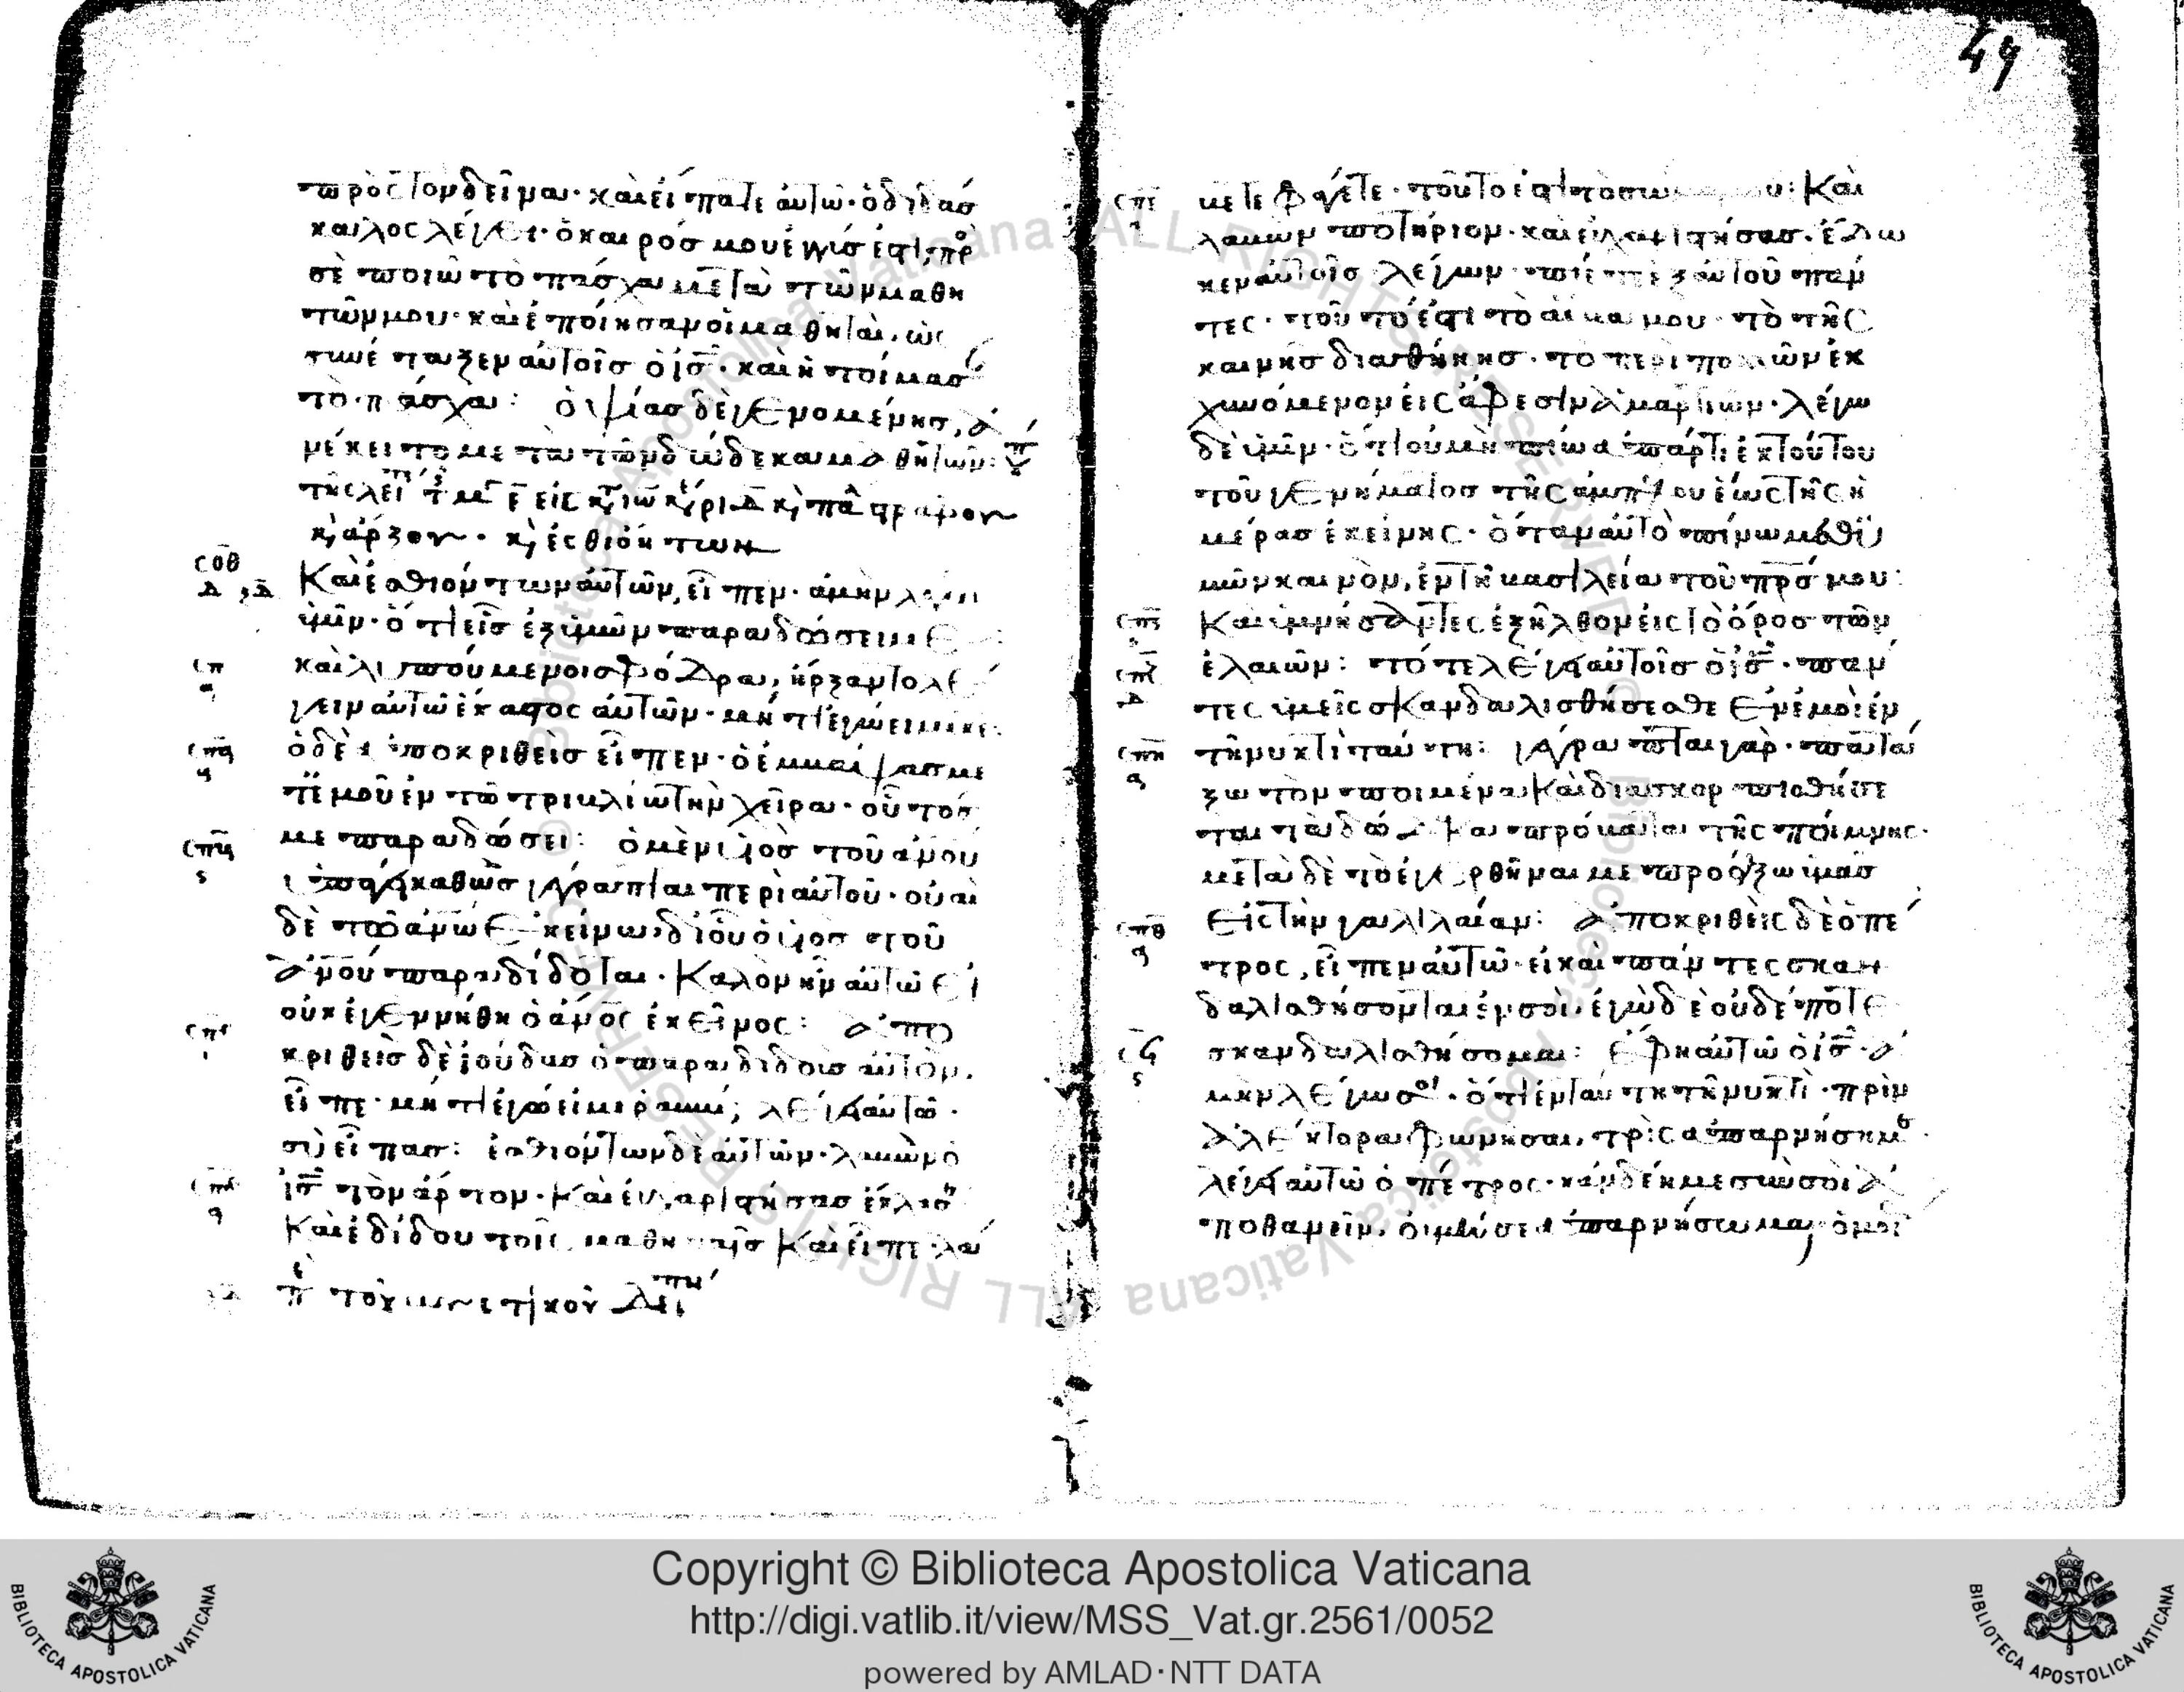 πρὸς τονδεῖνα· καὶ εἴπατε αὐτῶ· ὁ διδάσ
καλος λέγει· ὁ καιρός μου ἐγγύς ἐστι, πρὸ
σὲ ποιῶ τὸ πάσχα μετὰ τῶν μαθη
τῶν μου· καὶ ἐποίησαν οἱ μαθηταὶ, ὡς
συνέταξεν αὐτοῖς ὁ ις̅· καὶ ἡτοίμασ
τὸ πάσχα: ὀψίας δὲ γενομένης, ἀ
νέκειτο μετὰ τῶν δώδεκα μαθητῶν:
κ, ἄρξον· κ, ἐσθιόντων
σοθ
Καὶ ἐσθιόντων αὐτῶν, εἶπεν· ἀμὴν λέγω
ὑμῖν· ὅτι εἷς ἐξ ὑμῶν παραδώσει με
σπ
καὶ λυπούμενοι σφόδρα, ἤρξαντο λέ
γειν αὐτῶ ἕκαστος αὐτῶν· μή τι ἐγώ εἰμι κε:
σπα
ὁ δὲ ἀποκριθεὶς εἶπεν· ὁ ἐμβάψας με
τ' ἐμοῦ ἐν τῶ τρυβλίω τὴν χεῖρα· οὗτός
με παραδώσει: ὁ μὲν υἱὸς τοῦ ἀνου
ὑπάγει καθὼς γέγραπται περὶ αὐτοῦ· οὐαὶ
δὲ τῶ ἀνω ἐκείνω, δι' οὗ ὁ υἱὸς τοῦ
ἀνου παραδίδοται· Καλὸν ἦν αὐτῶ εἰ
οὐκ ἐγεννήθη ὁ ἀνος ἐκεῖνος: ἀπο
κριθεὶς δὲ ἰούδας ὁ παραδιδοὺς αὐτὸν,
εἶπε· μή τι ἐγώ εἰμι ραββί; λέγει αὐτῶ·
σὺ εἶπας: ἐσθιόντων δὲ αὐτῶν· λαβὼν ὁ
ις̅ τὸν ἄρτον· Καὶ εὐχαριστήσας ἔκλασ
Καὶ ἐδίδου τοῖς μαθηταῖς Καὶ εἶπε· λά
49
βετε φάγετε· τοῦτο ἐστι τὸ σῶ υ: Καὶ
λαβὼν ποτήριον· καὶ εὐχαριστήσας· ἔδω
κεν αὐτοῖς λέγων· πίετε ἐξ αὐτοῦ πάν
τες· τοῦτό ἐστι τὸ αἷμα μου· τὸ τῆς
καινῆς διαθήκης· τὸ περὶ πολλῶν ἐκ
χυνόμενον εἰς ἄφεσιν ἁμαρτιῶν· λέγω
δὲ ὑμῖν· ὅτι οὐ μὴ πίω ἀπάρτι ἐκ τούτου
τοῦ γεννήματος τῆς ἀμπέλου ἕως τῆς ἡ
μέρας ἐκείνης· ὅταν αὐτὸ πίνω μεθ' ὑ
μῶν καινὸν, ἐν τῆ βασιλεία τοῦ πρς μου:
Καὶ ὑμνήσαντες ἐξῆλθον εἰς τὸ ὄρος τῶν
ἐλαιῶν: τότε λέγει αὐτοῖς ὁ ις̅· πάν
τες ὑμεῖς σκανδαλισθήσεσθε ἐν ἐμοὶ ἐν
σπη
τῆ νυκτὶ ταύτη: γέγραπται γάρ· πατά
ξω τὸν ποιμένα Καὶ διασκορπισθήσε
ται τὰ πρόβατα τῆς ποίμνης·
μετὰ δὲ τὸ ἐγερθῆναι με προάξω ὑμᾶς
σπθ
εἰς τὴν γαλιλαίαν: ἀποκριθεὶς δὲ ὁ πέ
τρος, εἶπεν αὐτῶ· εἰ καὶ πάντες σκαν
δαλισθήσονται ἐν σοὶ, ἐγὼ δὲ οὐδέποτε
σκανδαλισθήσομαι: ἔφη αὐτῶ ὁ ις̅· ἀ
μὴν λέγω σοι· ὅτι ἐν ταύτη τῆ νυκτὶ· πρὶν
ἀλέκτορα φωνῆσαι, τρὶς ἀπαρνήση με·
λέγει αὐτῶ ὁ πέτρος· κἂν δέη με σὺν σοὶ ἀ
ποθανεῖν, οὐ μή σε ἀπαρνήσωμαι· ὁμοί
Copyright © Biblioteca Apostolica Vaticana
http://digi.vatlib.it/view/MSS_Vat.gr.2561/0052
powered by AMLAD·NTT DATA
BIBLIOTECA APOSTOLICA VATICANA
BIBLIOTECA APOSTOLICA VATICANA